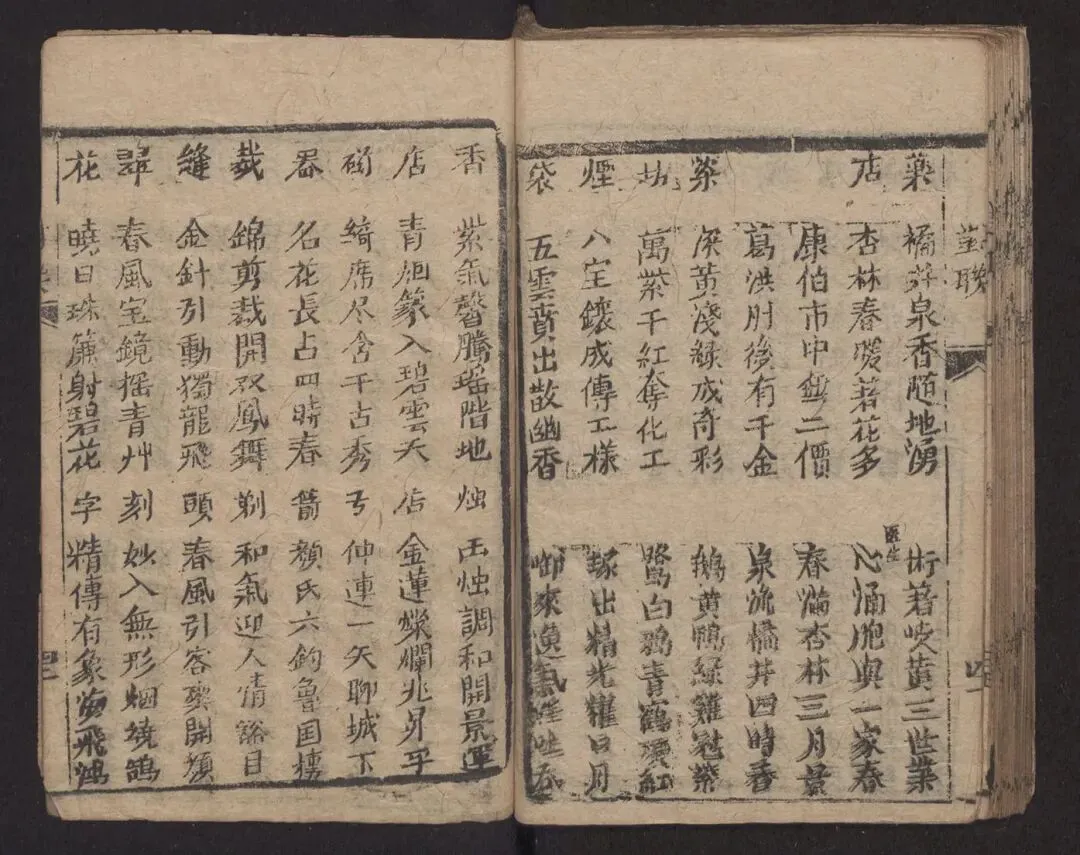 聯
藥 橘井泉香随地湧 術著岐黄三世業
店 杏林春暖著花多 醫生 心涌胞與一家春
康伯市中無二價 春滿杏林三月景
葛洪肘後有千金 泉流橘井四時香
染 深黄淺緑成奇彩 鵝黄鴨緑雞冠紫
坊 萬紫千紅奪化工 鷺白鴉青鶴頂紅
煙 八宝鑲成傳工樣 琢出精光耀日月
袋 五雲賁出散幽香 啣來氣
香 紫氣馨騰瑶階地 烛 玉烛調和開景運
店 青烟篆入碧雲天 店 金蓮燦爛兆昇平
磁 綺席尽含千古秀 弓 仲連一矢聊城下
器 名花長占四時春 箭 顏氏六鈞魯国樓
裁 錦剪裁開双鳳舞 剃 和氣迎人情豁目
縫 金針引動獨龍飛 頭 春風引客樂開顏
翠 春風宝鏡摇青艸 刻 妙入無形烟燒鴿
花 曉日珠簾射碧花 字 精傳有象飛鴻